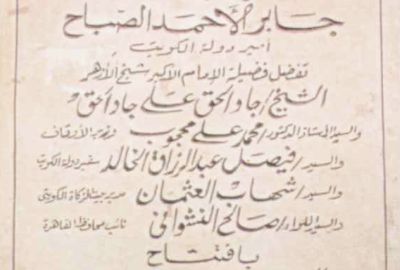 جابر الأحمد الصباح
أمير دولة الكويت
تفضل فضيلة الإمام الأكبر شيخ الأزهر
الشيخ/جاد الحق على جاد الحق
والسيد الأستاذ الدكتور/محمد على محجوب وزير الأوقاف
والسيد/فيصل عبد الرزاق الخالد سفير دولة الكويت
والسيد/شهاب العثمان مدير بيت الزكاة الكويتى
والسيد اللواء/صالح النشوانى نائب محافظ القاهرة
بافتتاح